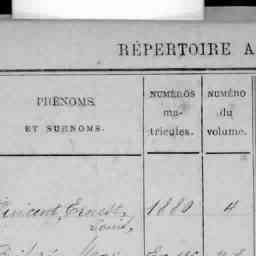 RÉPERTOIRE A
PRÉNOMS
ET SURNOMS.
NUMÉROS
ma-
tricules.
NUMÉRO
du
volume.
Vincent, Ernest, 1880 4
Louis,